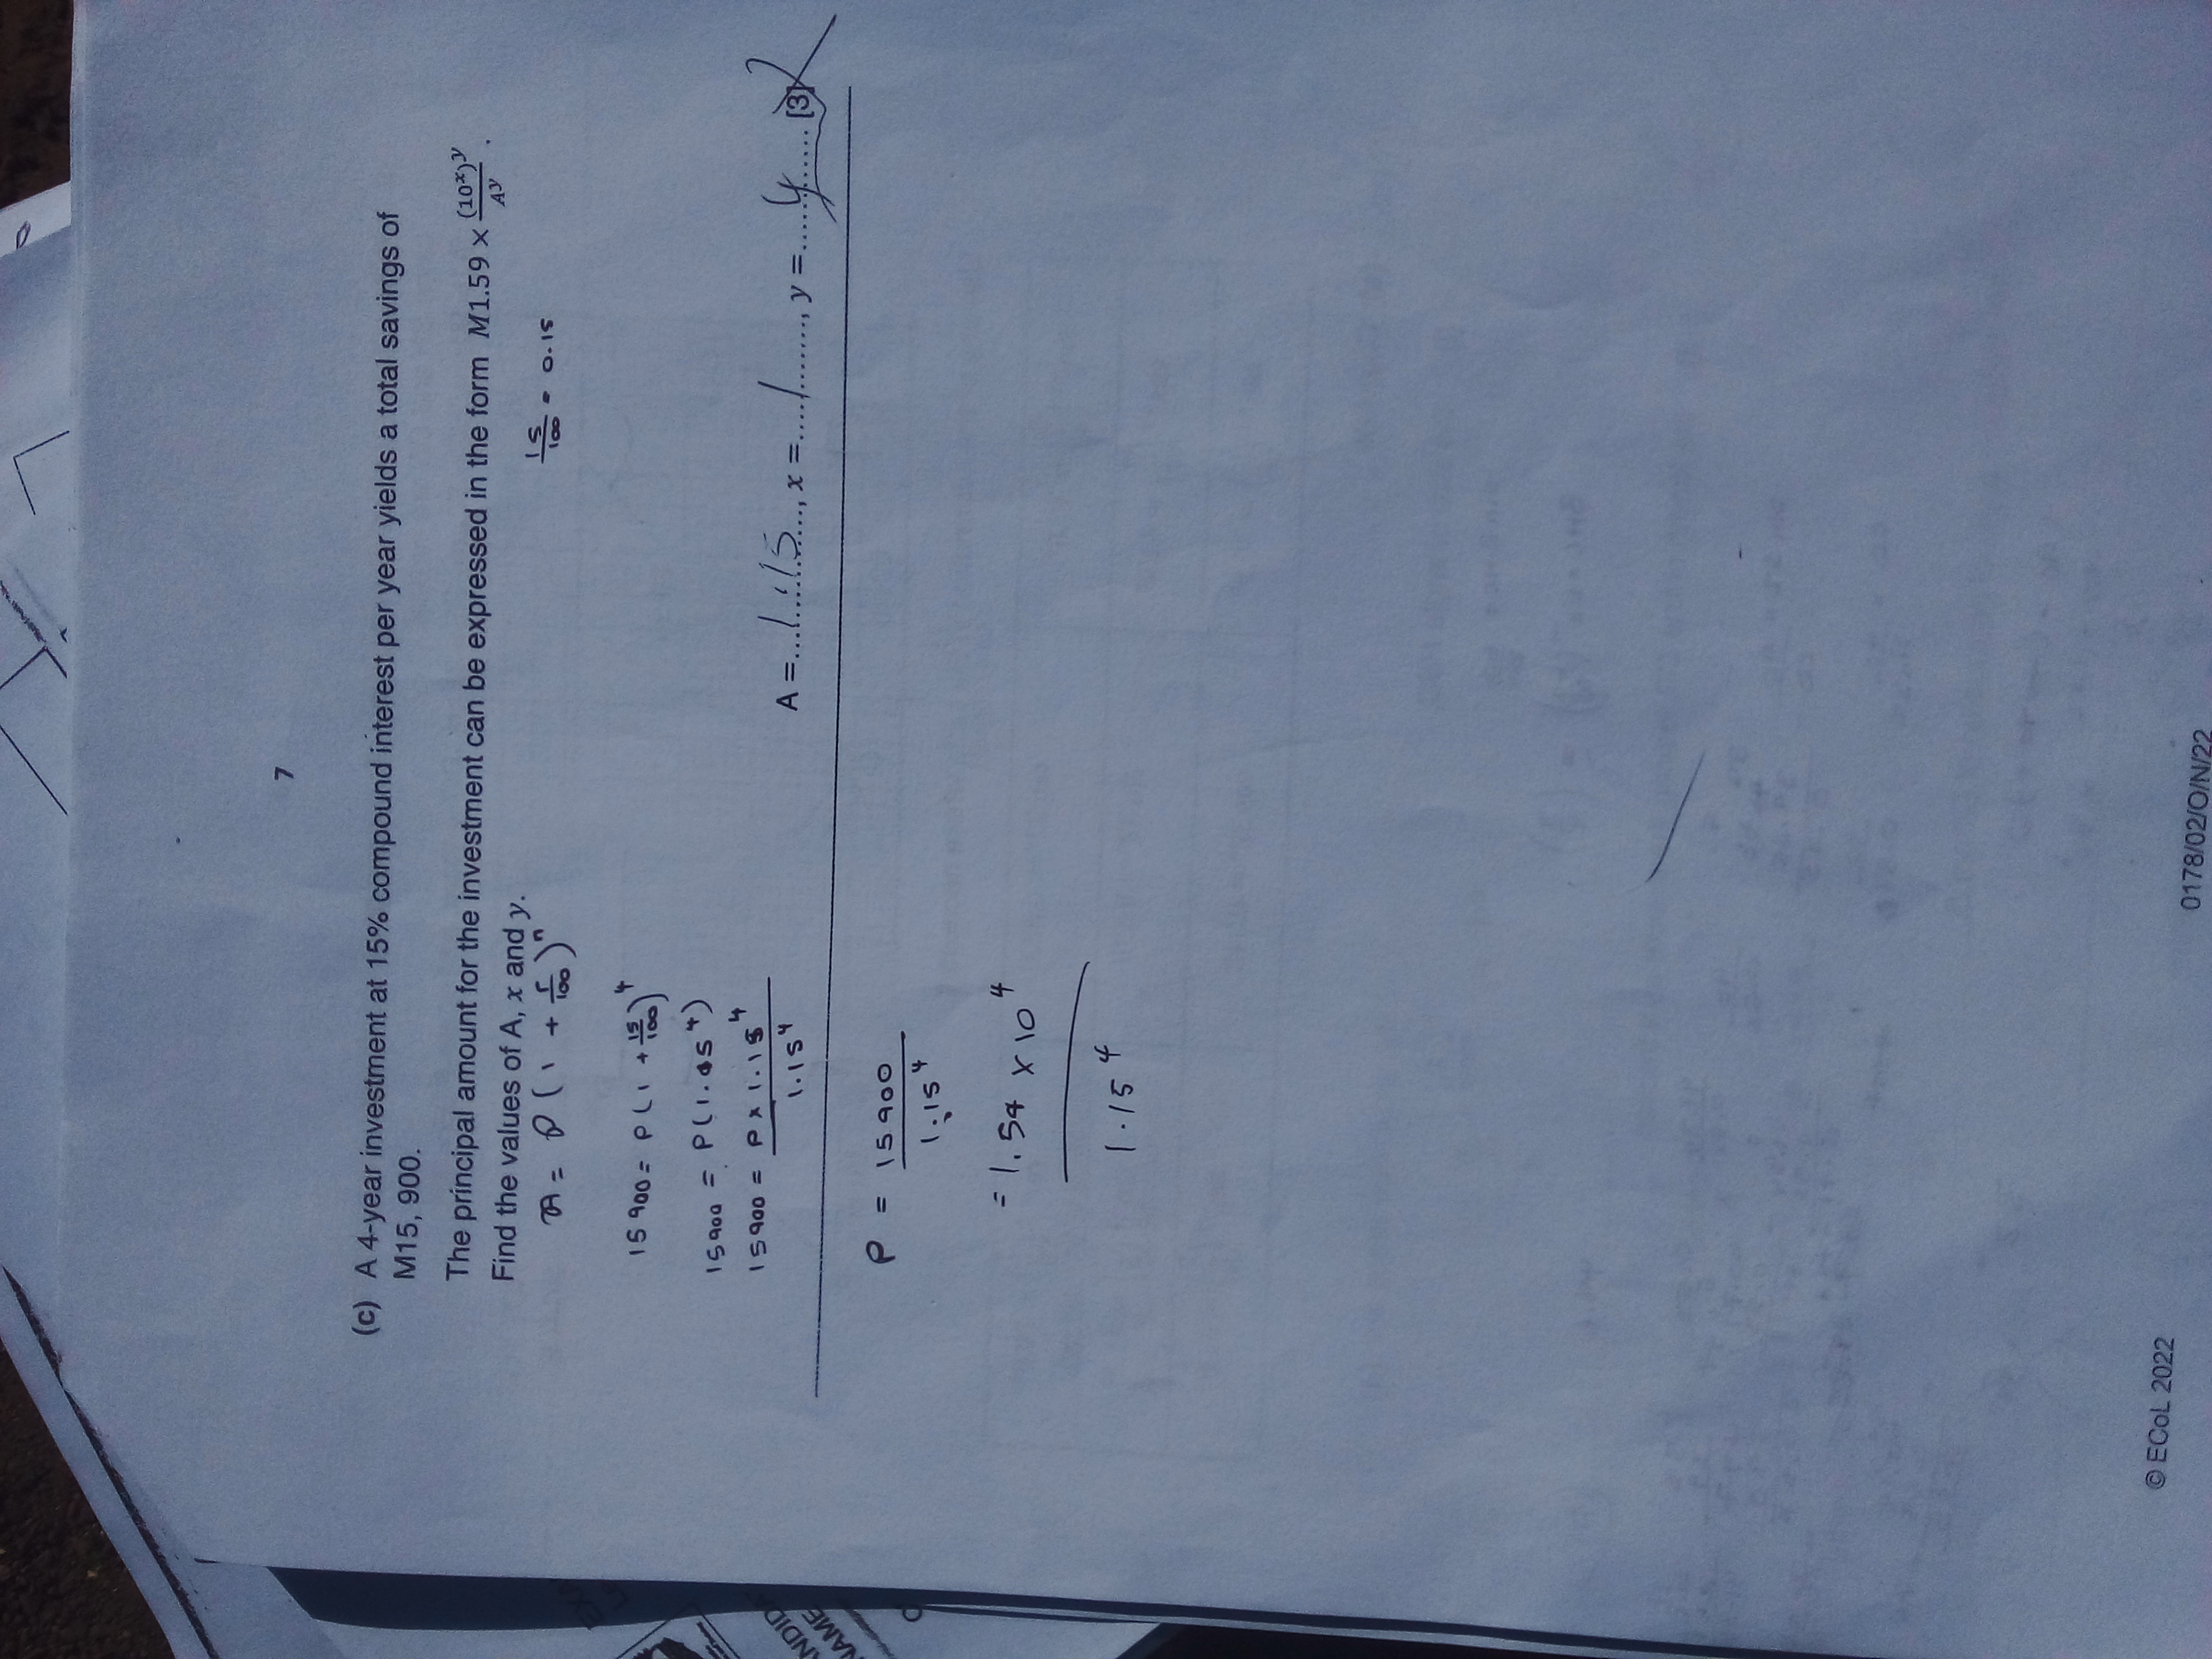 7
(c) A 4-year investment at 15% compound interest per year yields a total savings of
M15, 900.
The principal amount for the investment can be expressed in the form M1.59 × (10^x)^y / A^y .
Find the values of A, x and y.
A = P(1 + r/100)^n
15/100 = 0.15
15 900 = P(1 + 15/100)^4
15900 = P(1.15^4)
15900 = P × 1.15^4 / 1.15^4
A = 1.15, x = 1, y = 4 [3]
P = 15900 / 1.15^4
= 1.59 × 10^4 / 1.15^4
ANDID
NAME
© ECoL 2022
0178/02/O/N/22